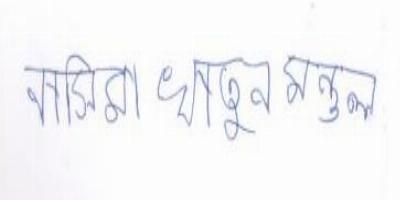 নাসিমা খাতুন মন্ডল